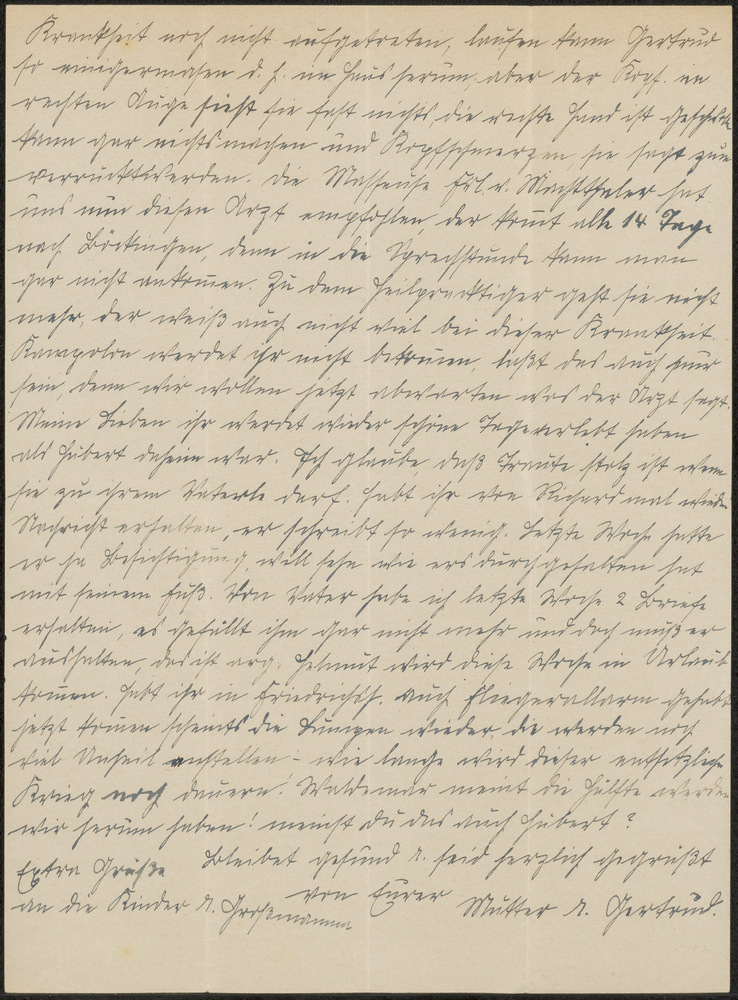 Krankheit noch nicht aufgetreten, laufen kann Gertrud
so einigermasen d. h. im Haus herum, aber der Kopf. im
rechten Auge sieht sie fast nichts, die rechte Hand ist geschwollen
kann gar nichts machen und Kopfschmerzen, sie sagt zum
verrücktwerden. Die Masseuse Frl. v. Machtthaler hat
uns nun diesen Arzt empfohlen, der kom̄t alle 14 Tage
nach Böckingen, denn in die Sprechstunde kann man
gar nicht ankom̄en. Zu dem Heilpracktiger geht sie nicht
mehr, der weiß auch nicht viel bei dieser Krankheit.
Kampolon werdet ihr nicht bekom̄en, laßt das auch nur
sein, denn wir wollen jetzt abwarten was der Arzt sagt.
Meine Lieben ihr werdet wieder schöne Tage verlebt haben
als Hubert daheim war. Ich glaube daß Traute stolz ist wenn
sie zu ihrem Vaterle darf. Habt ihr von Richard mal wieder
Nachricht erhalten, er schreibt so wenig. Letzte Woche hatte
er ja Besichtigung, will sehn wie ers durchgehalten hat
mit seinem Fuß. Von Vater habe ich letzte Woche 2 Briefe
erhalten, es gefällt ihm gar nicht mehr und doch muß er
aushalten, das ist arg. Helmut wird diese Woche in Urlaub
kom̄en. Habt ihr in Friedrichsh. auch Fliegerallarm gehabt
jetzt kom̄en scheints die Lumpen wieder, die werden noch
viel Unheil anstellen - wie lange wird dieser entsetzliche
Krieg noch dauern! Waldemar meint die Hälfte werden
wir herum haben! meinst du das auch Hubert?
Bleibet gesund u. seid herzlich gegrüßt
Extra Grüße
von Eurer
an die Kinder u. Großmamma
Mutter u. Gertrud.